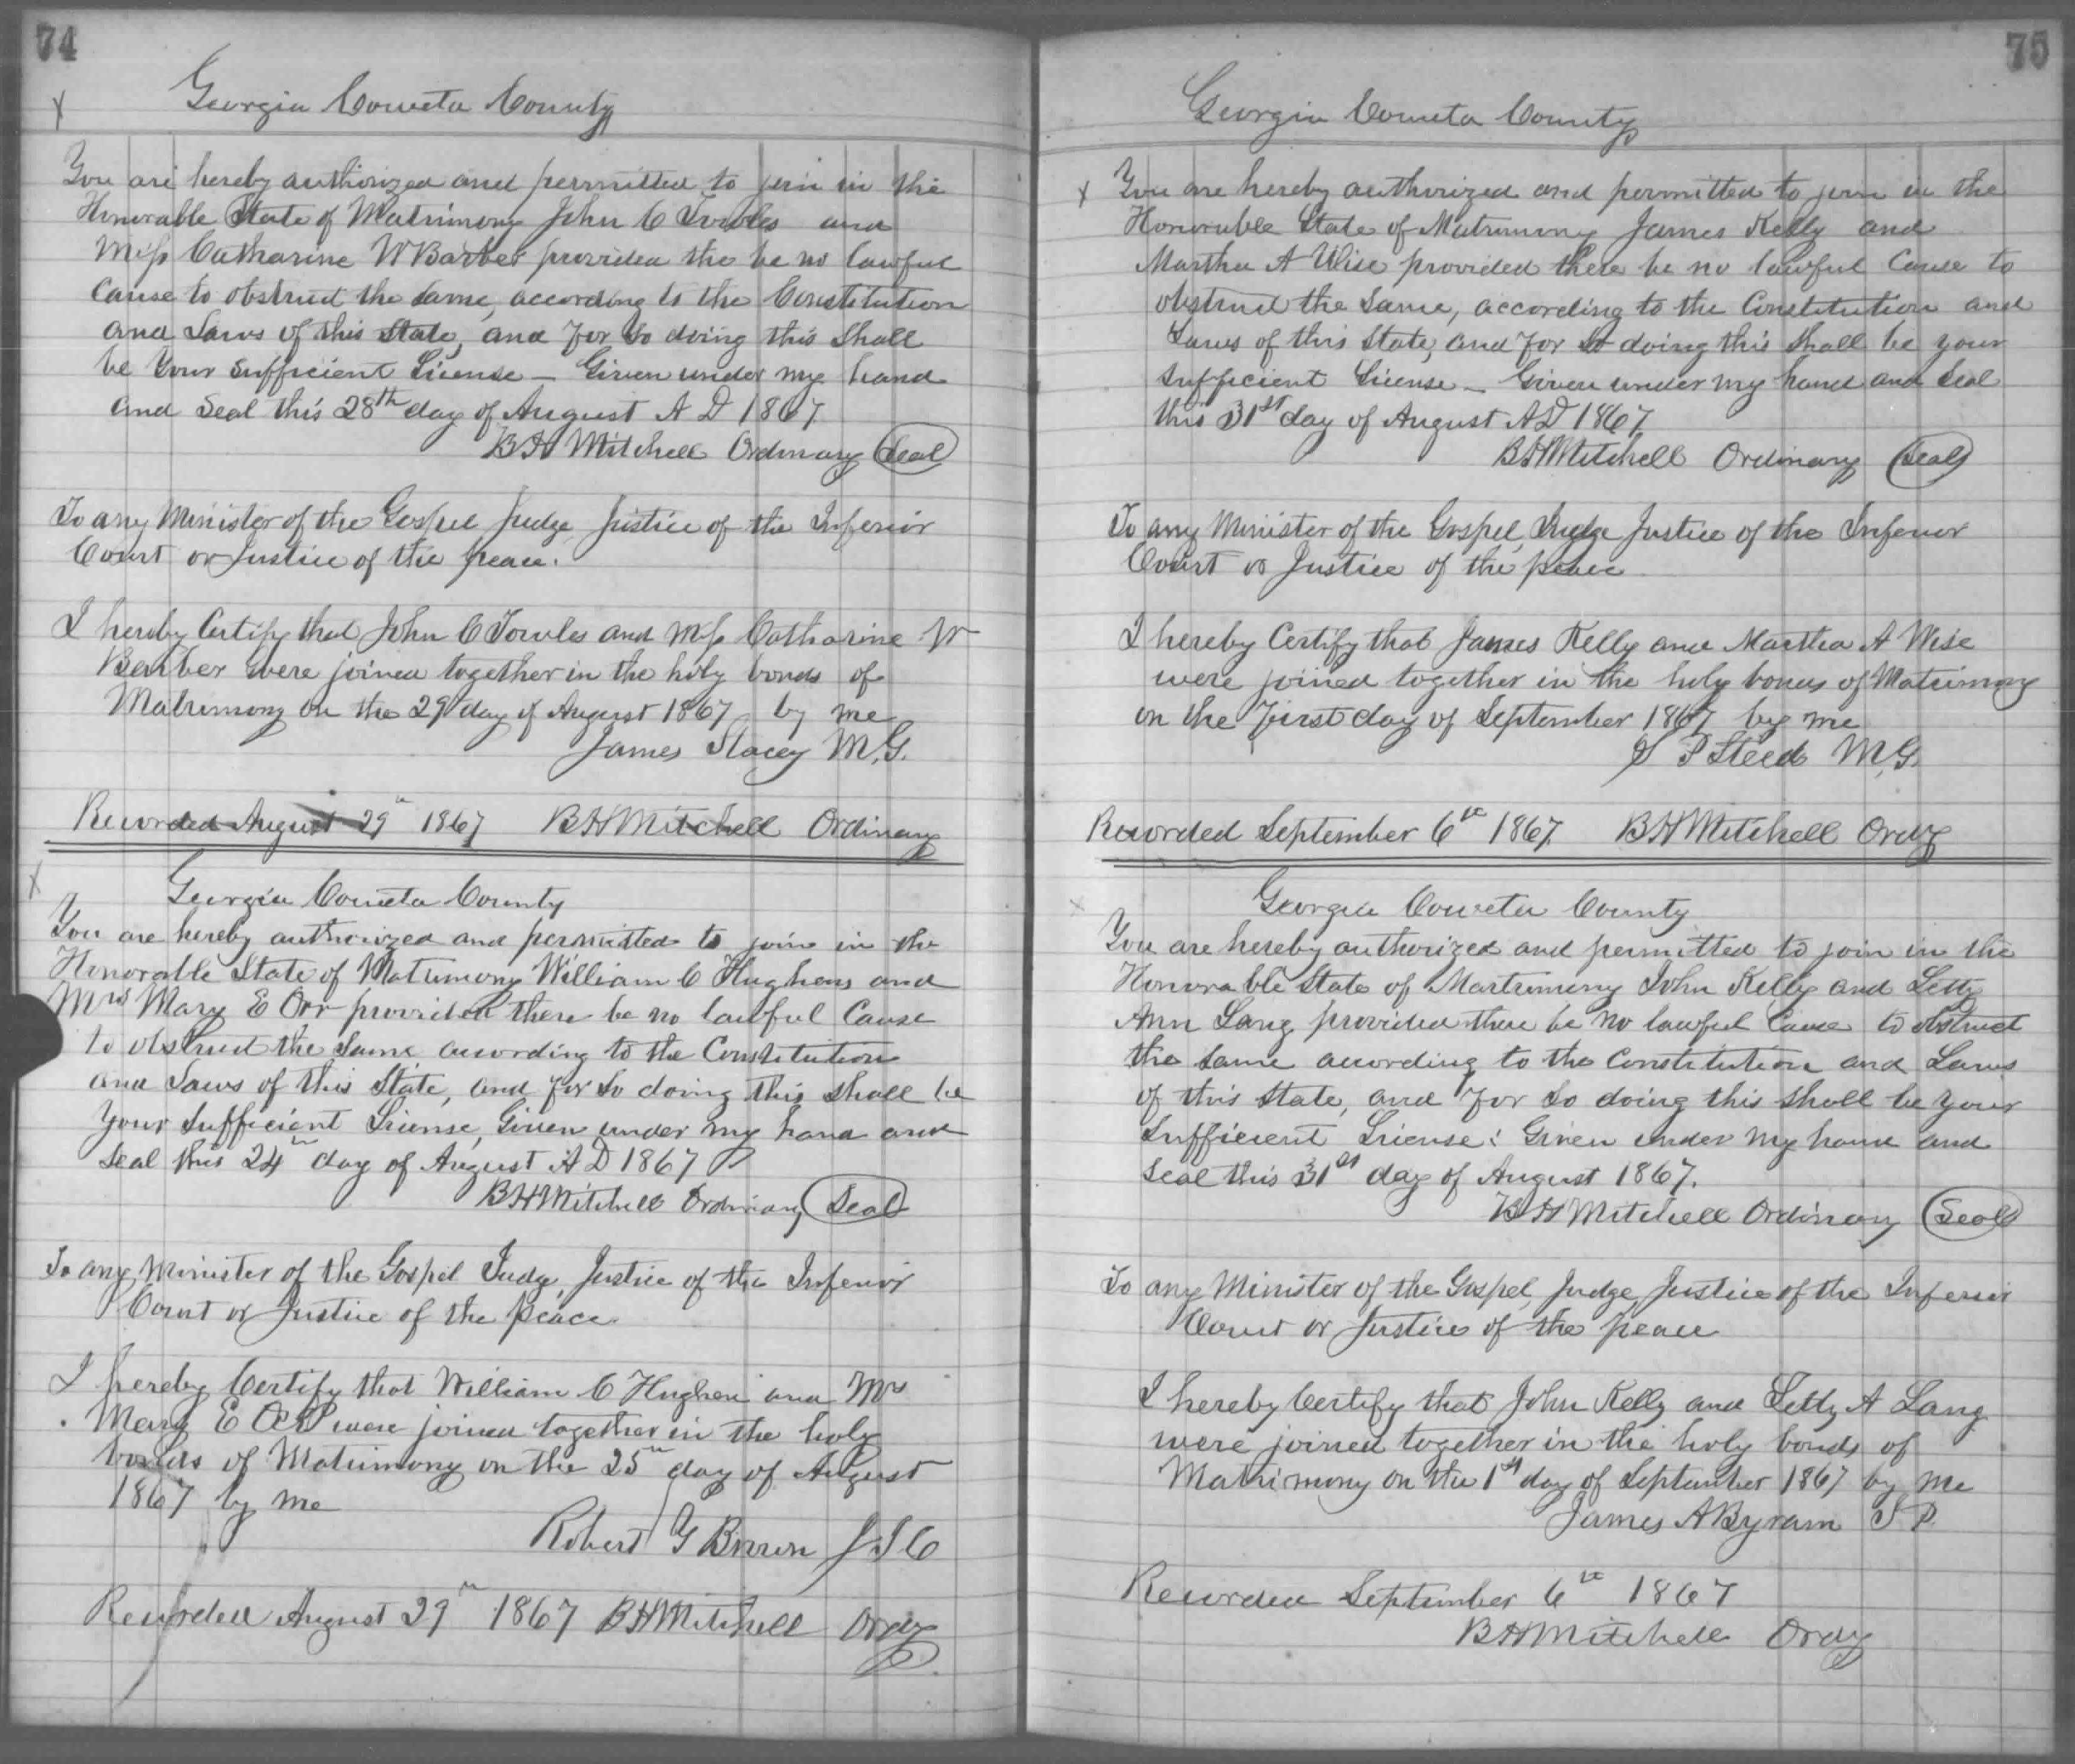 74
Georgia Coweta County
You are hereby authorized and permitted to join in the
Honorable State of Matrimony John C Towles and
Miss Catharine W Barber provided the be no lawful
Cause to obstruct the Same, according to the Constitution
and Laws of this State, and for So doing this Shall
be Your Sufficient License – Given under my hand
and Seal this 28th day of August A D 1867.
B H Mitchell Ordinary Seal
To any Minister of the Gospel Judge Justice of the Inferior
Court or Justice of the peace.
I hereby Certify that John C Towles and Miss Catharine W
Barber were joined together in the holy bonds of
Matrimony on the 29 day of August 1867 by me
James Stacey M.G.
Recorded August 29th 1867 B H Mitchell Ordinary
Georgia Coweta County
You are hereby authorized and permitted to join in the
Honorable State of Matrimony William C Hughens and
Mrs Mary E Orr provided there be no lawful Cause
to obstruct the Same according to the Constitution
and Laws of this State, and for So doing this Shall be
Your Sufficient License, Given under my hand and
Seal this 24th day of August A D 1867
B H Mitchell Ordinary Seal
To any Minister of the Gospel Judge, Justice of the Inferior
Court or Justice of the Peace.
I hereby Certify that William C Hughen and Mrs
Mary E Orr were joined together in the holy
bonds of Matrimony on the 25th day of August
1867 by me
Robert G Brown J I C
Recorded August 29th 1867 B H Mitchell Ordy
75
Georgia Coweta County
You are hereby authorized and permitted to join in the
Honorable State of Matrimony James Kelly and
Martha A Wise provided there be no lawful Cause to
obstruct the Same, according to the Constitution and
Laws of this State, and for So doing this Shall be your
Sufficient License – Given under my hand and Seal
this 31st day of August AD 1867.
B H Mitchell Ordinary Seal
To any Minister of the Gospel, Judge Justice of the Inferior
Court or Justice of the peace
I hereby Certify that James Kelly and Martha A Wise
were joined together in the holy bonds of Matrimony
on the First day of September 1867 by me
P Steed M.G.
Recorded September 6th 1867. B H Mitchell Ordy
Georgia Coweta County
You are hereby authorized and permitted to join in the
Honorable State of Martrimony John Kelly and Letty
Ann Lang provided there be no lawful Cause to obstruct
the Same according to the Constitution and Laws
of this State, and for So doing this Shall be Your
Sufficient License: Given under my hand and
Seal this 31st day of August 1867.
B H Mitchell Ordinary Seal
To any Minister of the Gospel, Judge, Justice of the Inferior
Court or Justice of the peace
I hereby Certify that John Kelly and Letty A Lang
were joined together in the holy bonds of
Matrimony on the 1st day of September 1867 by me
James A Byram J P.
Recorded September 6th 1867
B H Mitchell Ordy